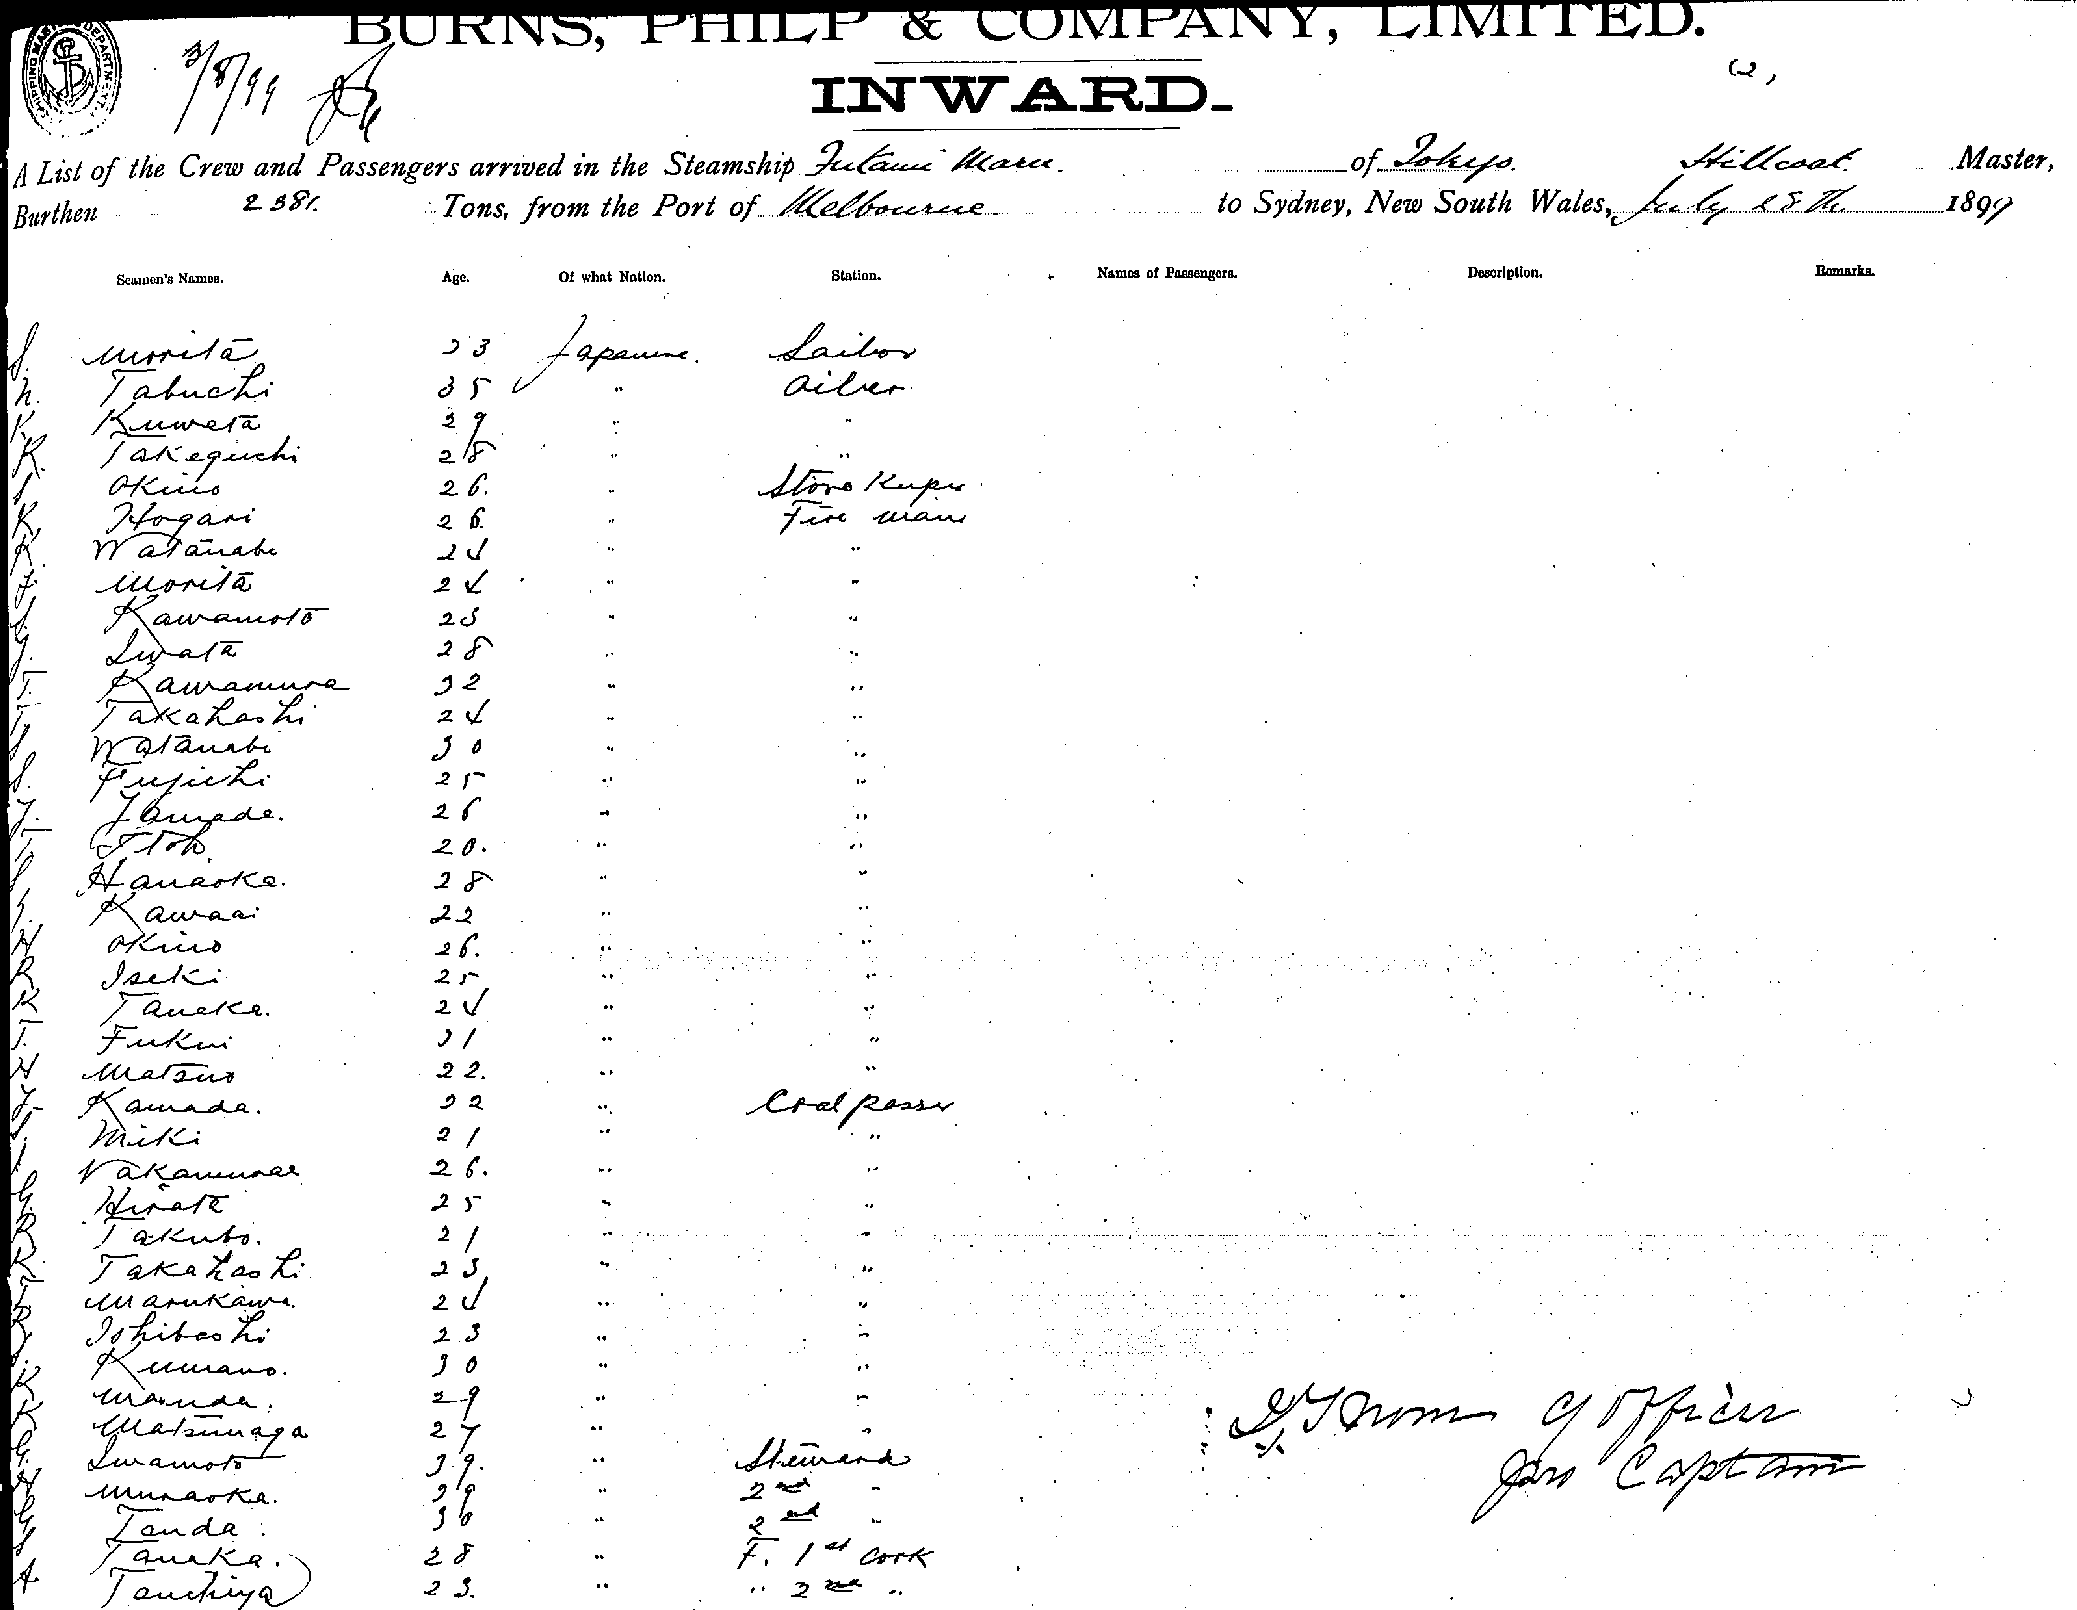 BURNS, PHILP & COMPANY, LIMITED.
3/8/99
INWARD.
A List of the Crew and Passengers arrived in the Steamship Futami Maru. of Tokyo. Hillcoat. Master,
Burthen 2381. Tons, from the Port of Melbourne to Sydney, New South Wales, July 28th 1899
Seamen's Names. Age. Of what Nation. Station. Names of Passengers. Description. Remarks.
S. Morita 23 Japanese. Sailor
N. Tabuchi 35 " Oiler
K. Kuweta 29 " "
K. Takeguchi 28 " "
Okino 26. " Store Keeper
K. Hogari 26. " Fire man
K. Watanabe 24 " "
Morita 24 " "
S. Kawamoto 23 " "
Iwata 28 " "
T. Kawamura 32 " "
T. Takahashi 24 " "
Watanabe 30 " "
S. Fujichi 25 " "
Y. Yamada. 26 " "
T. Itoh. 20. " "
Hanaoka. 28 " "
Kawaai 22 " "
H Okino 26. " "
R Iseki 25 " "
K Tanaka. 24 " "
T. Fukui 31 " "
H Matsuo 22. " "
Kamada. 22 " Coal passer
Miki 21 " "
Nakamura 26. " "
G. Hirata 25 " "
R Takubo. 21 " "
K. Takahashi 23 " "
Marukawa. 24 " "
Ishibashi 23 " "
Kumano. 30 " "
K Maruda. 29 " "
K Matsunaga 27 " "
G. Iwamoto 39. " Steward
H Muraoka. 29 " 2nd "
Tanda. 30 " 2nd "
Tanaka. 28 " F. 1st Cook
A. Tanchiya 23. " " 2nd "
Officer
pro Captain